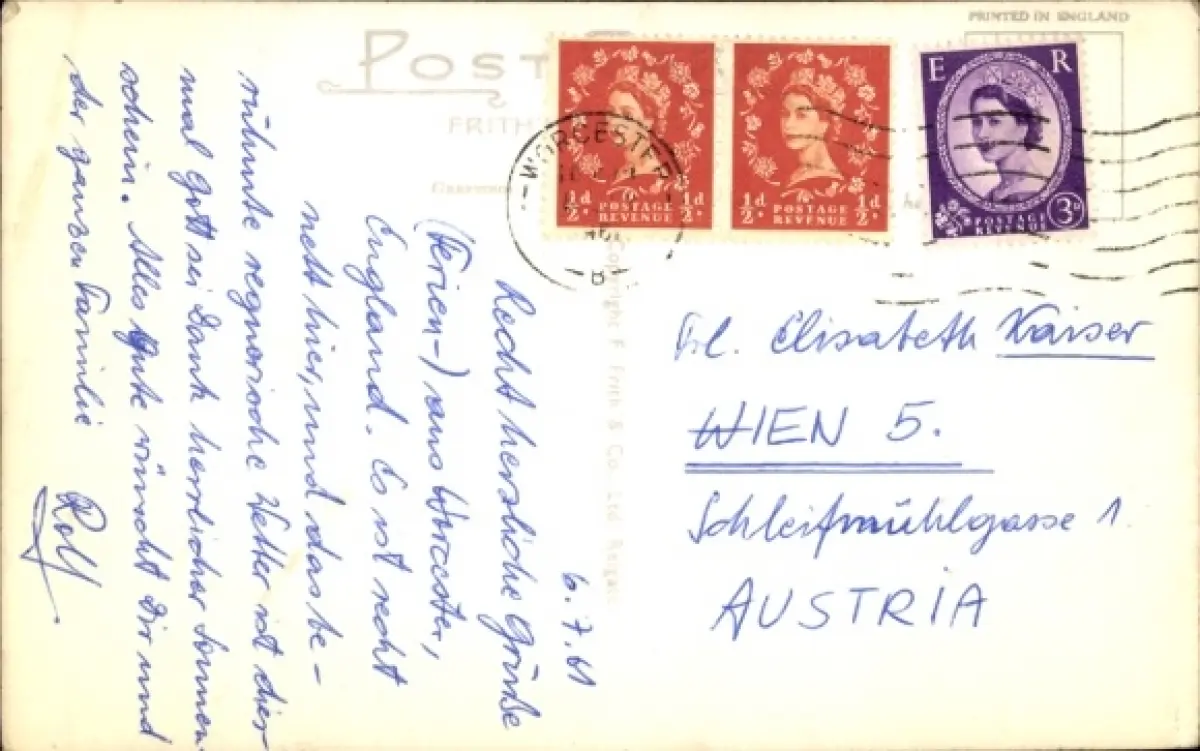 PRINTED IN ENGLAND
POST
FRITH'
WORCESTER
1/2d. POSTAGE REVENUE 1/2d.
1/2d. POSTAGE REVENUE 1/2d.
E R
POSTAGE REVENUE 3d
Copyright F. Frith & Co. Ltd. Reigate
6.7.61
Recht herzliche Grüße
(Ferien-) aus Worcester,
England. Es ist recht
nett hier, und das be-
rühmte regnerische Wetter ist dies-
mal Gott sei Dank herrlicher Sonnen-
schein. Alles Gute wünscht Dir und
der ganzen Familie
Rolf
Frl. Elisabeth Kaiser
WIEN 5.
Schleifmühlgasse 1.
AUSTRIA